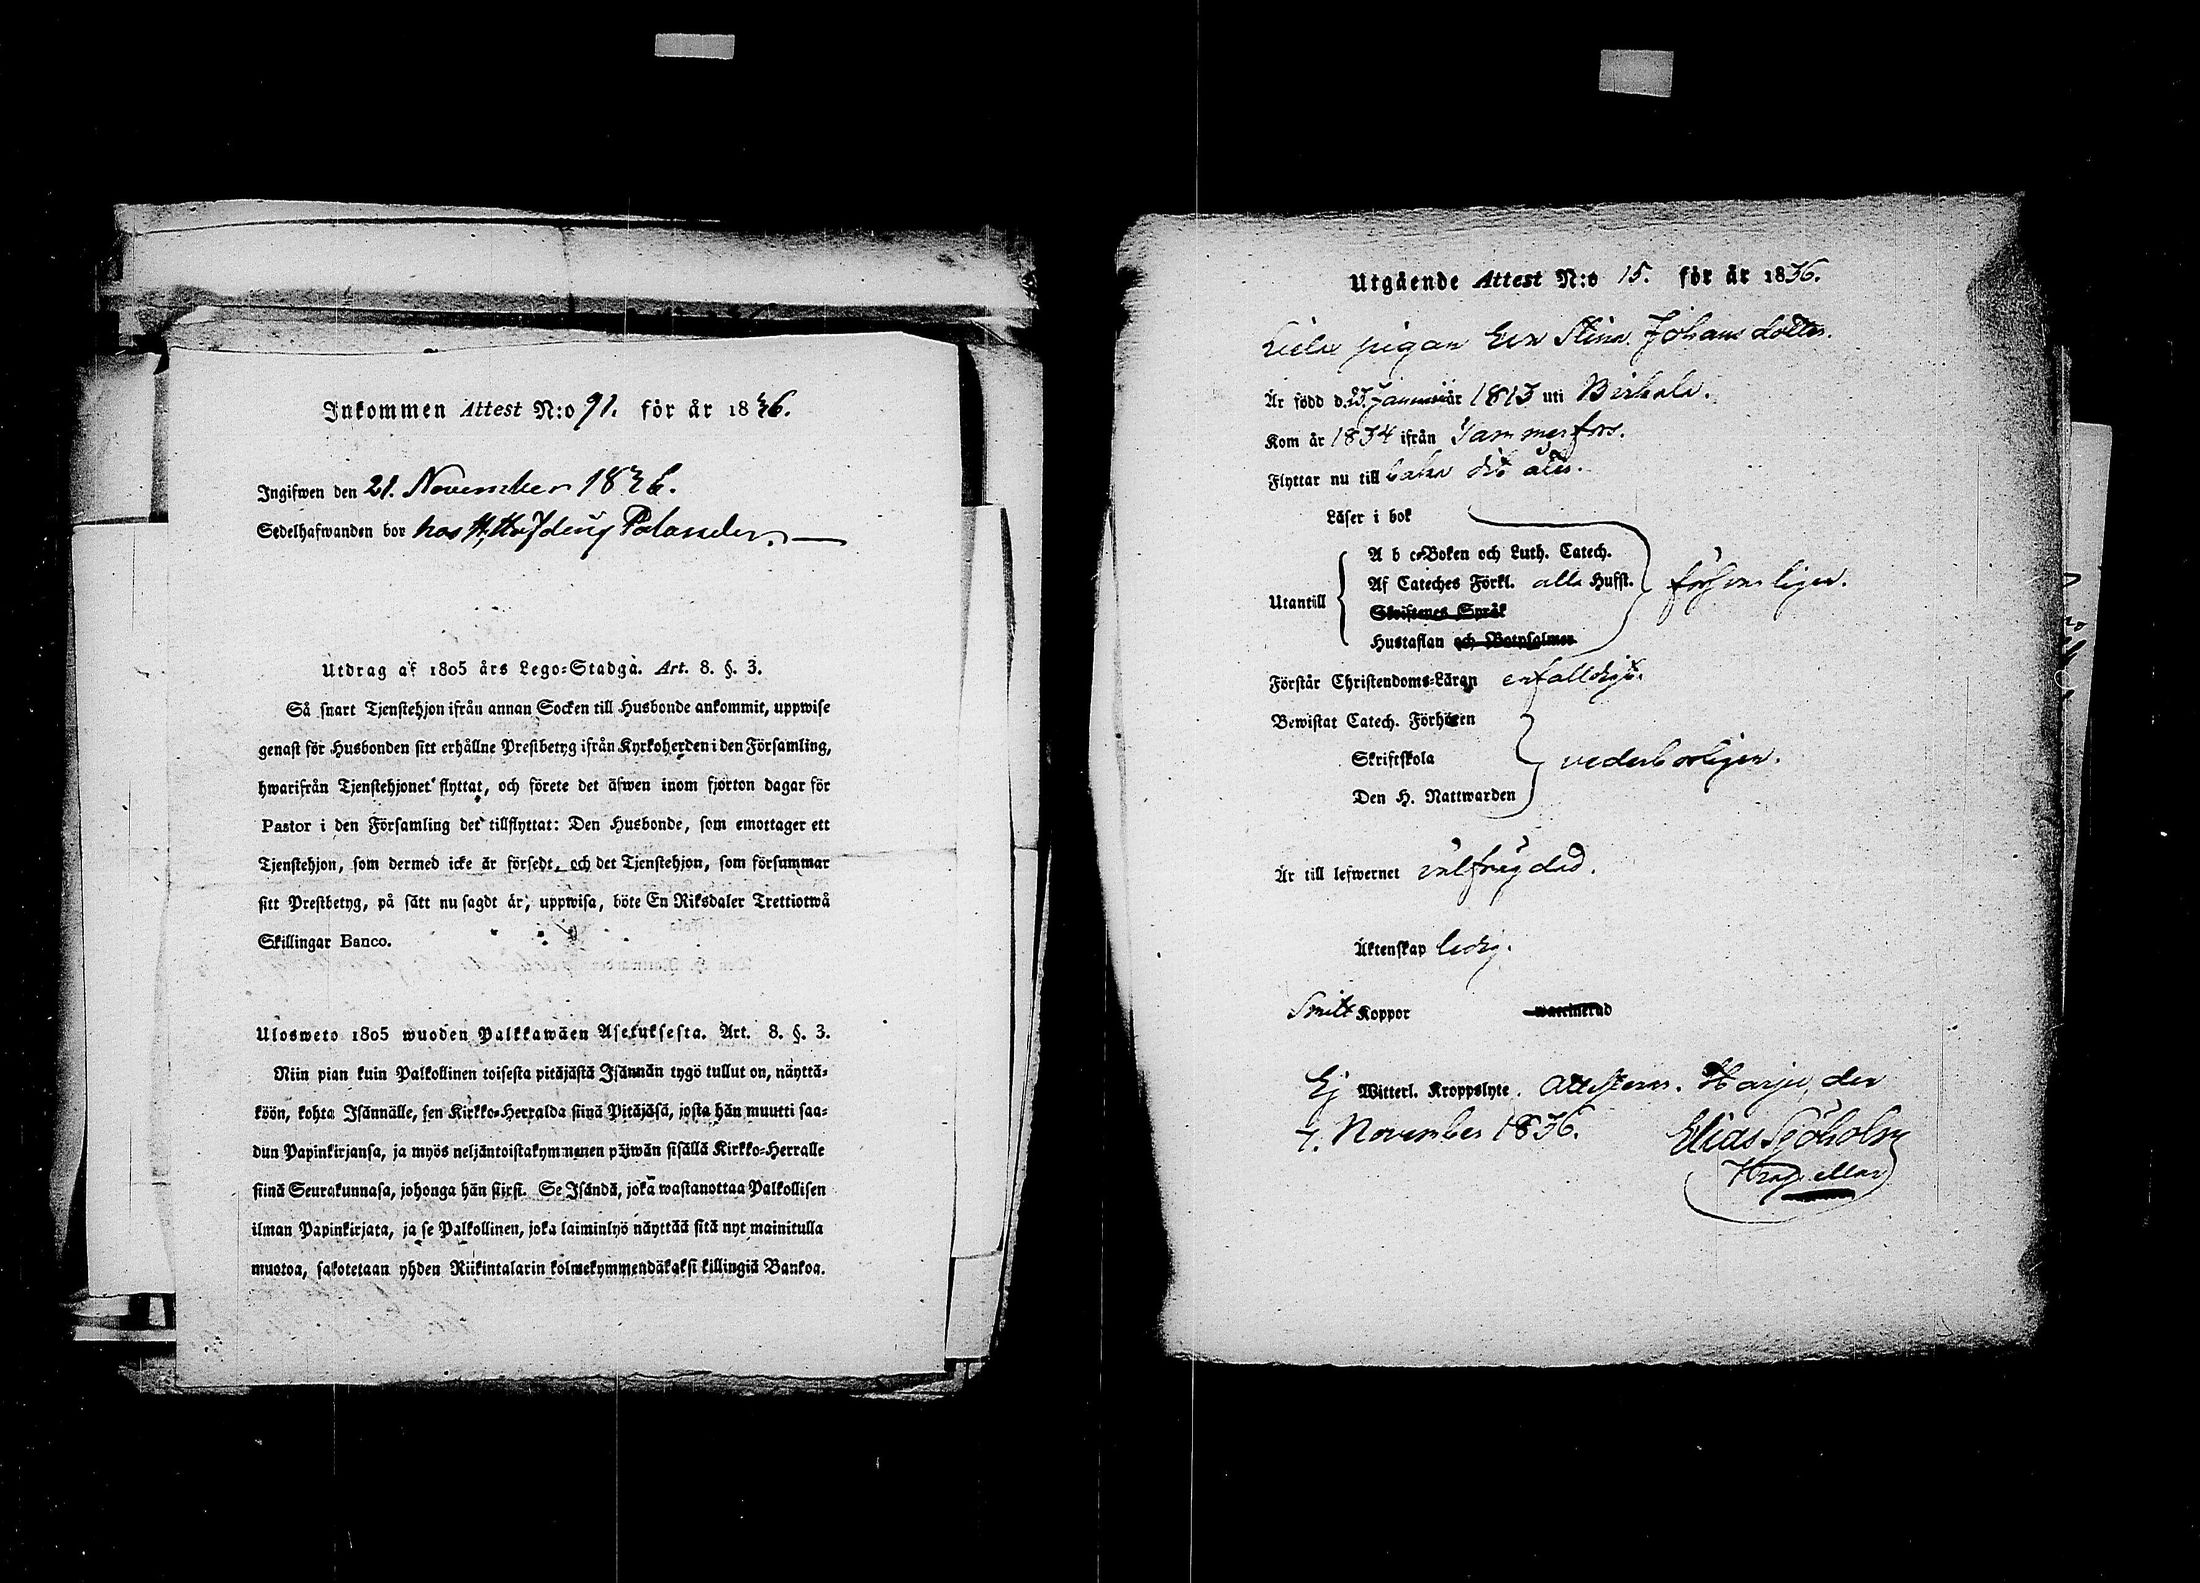 Inkommen Attest N:o 91. för år 1836.
Ingifwen den 21. November 1836.
Sedelhafwanden bor hos Polander.
Utdrag af 1805 års Lego-Stadga. Art. 8. §. 3.
Så snart Tjenstehjon ifrån annan Socken till Husbonde ankommit, uppwise
genast för Husbonden sitt erhållne Prestbetyg ifrån Kyrkoherden i den Församling,
hwarifrån Tjenstehjonet flyttat, och förete det äfwen inom fjorton dagar för
Pastor i den Församling det tillflyttat: Den Husbonde, som emottager ett
Tjenstehjon, som dermed icke är försedt, och det Tjenstehjon, som försummar
sitt Prestbetyg, på sätt nu sagdt är, uppwisa, böte En Riksdaler Trettiotwå
Skillingar Banco.
Ulosweto 1805 wuoden Palkkawäen Asetuksesta. Art. 8. §. 3.
Niin pian kuin Palkollinen toisesta pitäjästä Isännän tygö tullut on, näyttä-
köön, kohta Isännälle, sen Kirkko-Herralda siinä Pitäjäsä, josta hän muutti saa-
dun Papinkirjansa, ja myös neljäntoistakymmenen päiwän sisällä Kirkko-Herralle
siinä Seurakunnasa, johonga hän siirsi. Se Isändä, joka wastanottaa Palkollisen
ilman Papinkirjata, ja se Palkollinen, joka laiminlyö näyttää sitä nyt mainitulla
muotoa, sakotetaan yhden Riikintalarin kolmekymmendäkaksi killingiä Bankoa.
Utgående Attest N:o 15. för år 1836.
pigan Eva Stina Johansdotter.
Är född d. 23 Januarii år 1813 uti Birkala.
Kom år 1834 ifrån Tammerfors.
Flyttar nu till baka dit åter.
Läser i bok
A b c-Boken och Luth. Catech.
Af Cateches Förkl. alla Hufst. försvarligen.
Utantill
Skriftenes Språk
Hustaflan och Botpsalmer
Förstår Christendoms-Läran enfalldigt.
Bewistat Catech. Förhören
Skriftskola vederbörligen.
Den H. Nattwarden
Är till lefwernet välfräjdad.
Äktenskap ledig.
Koppor waccinerad
Ej Witterl. Kroppslyte. attesterar. Harju, den
7. November 1836. Elias Sjöholm